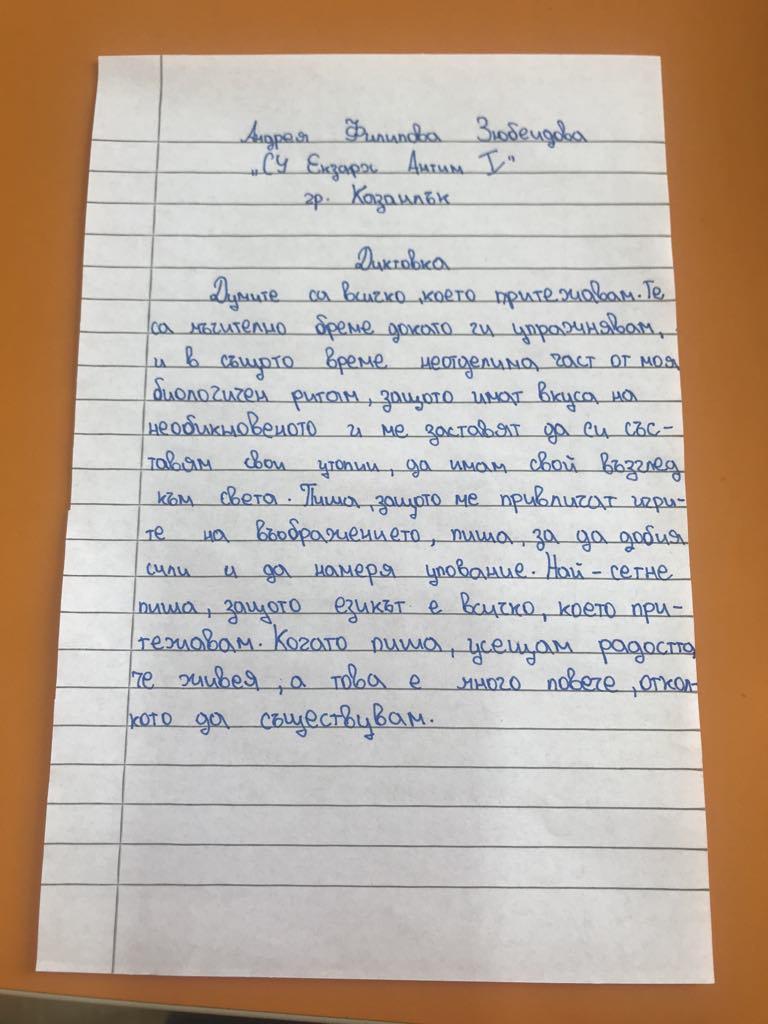 Андрея Филипова Зюбеидова
„СУ Екзарх Антим I"
гр. Казанлък
Диктовка
Думите са всичко, което притежавам. Те
са мъчително бреме докато ги упражнявам,
и в същото време неотделима част от моя
биологичен ритам, защото имат вкуса на
необикновеното и ме заставят да си със-
тавям свои утопии, да имам свой възглед
към света. Пиша, защото ме привличат игри-
те на въображението, пиша, за да добия
сили и да намеря упование. Най-сетне
пиша, защото езикът е всичко, което при-
тежавам. Когато пиша, усещам радостта
че живея, а това е много повече, откол-
кото да съществувам.